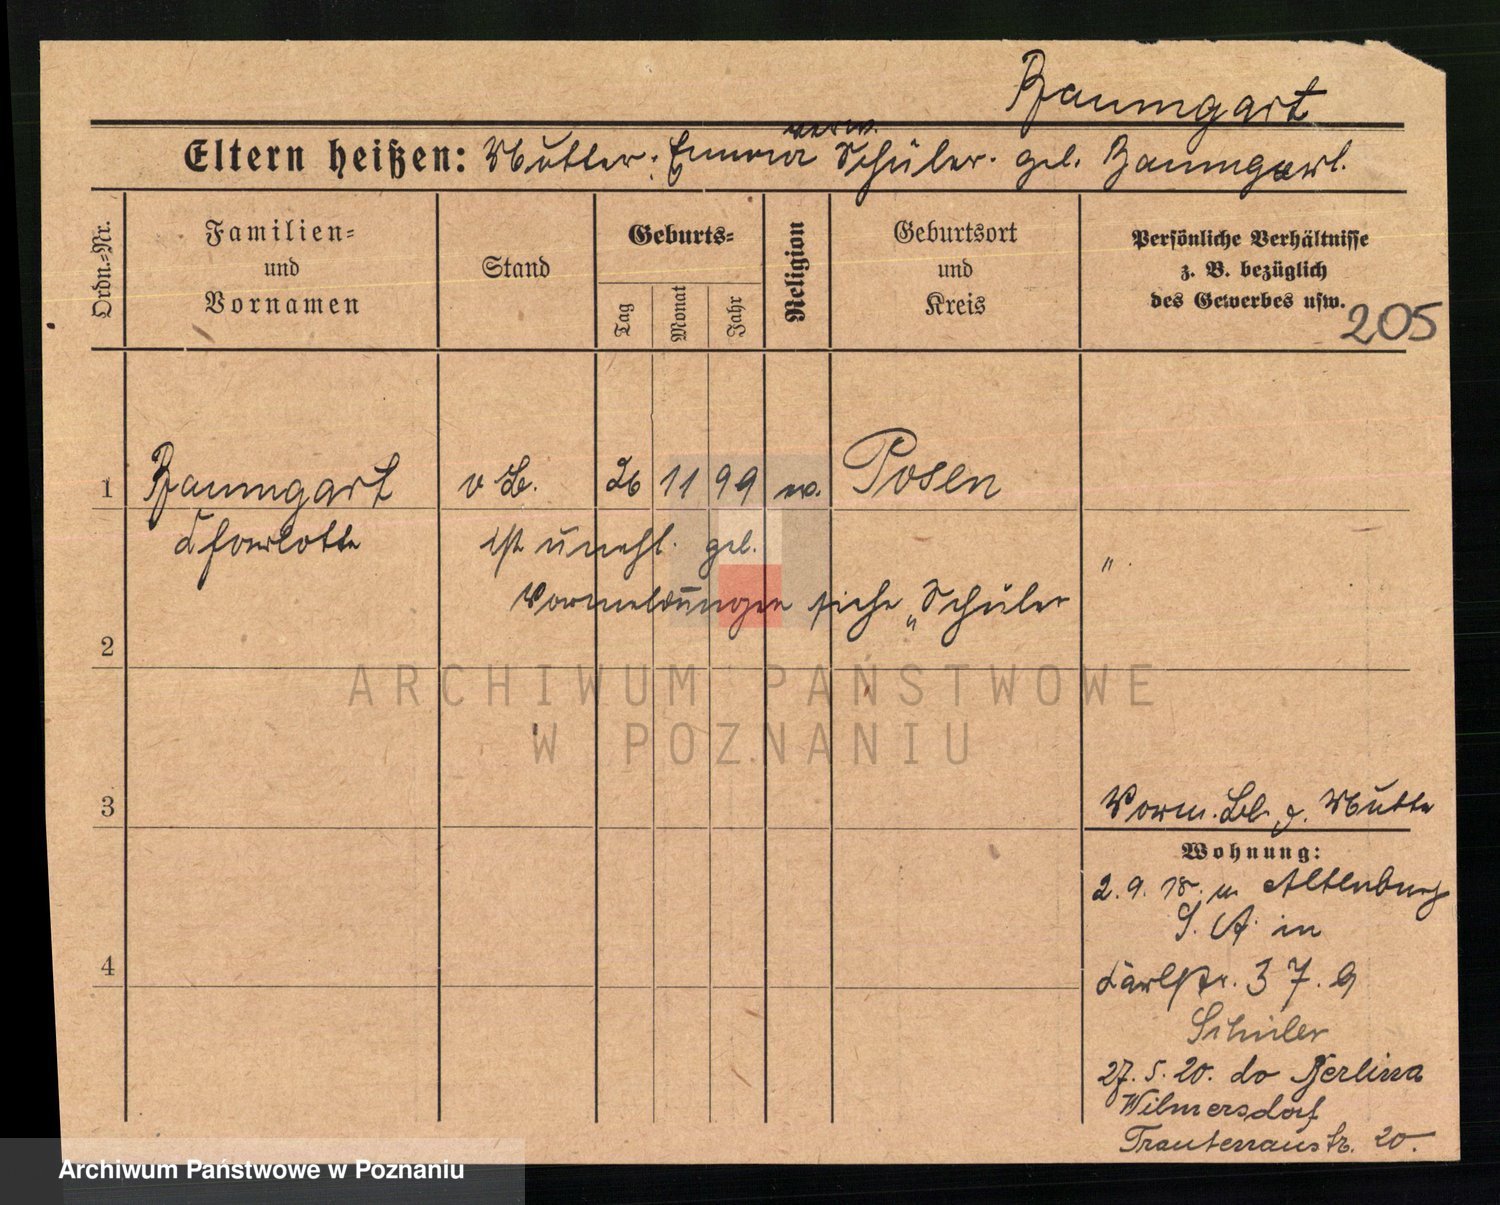 Baumgart
verw.
Eltern heißen: Mutter: Emma Schüler. geb. Baumgart.
Ordn.-Nr.
Familien-
und
Vornamen
Stand
Geburts-
Tag
Monat
Jahr
Religion
Geburtsort
und
Kreis
Persönliche Verhältnisse
z. B. bezüglich
des Gewerbes usw.
205
1 Baumgart 26 11 99 Posen
Charlotte ist unehl. geb.
"
Vormeldungen siehe „Schüler
2
ARCHIWUM PAŃSTWOWE
W POZNANIU
3
Vorm. d. Mutter
Wohnung:
2. 9. 18. Altenburg
S. A. in
Carlstr. 37.
4
Schüler
27. 5. 20. do Berlina
Wilmersdorf
Trautenaustr. 20.
Archiwum Państwowe w Poznaniu